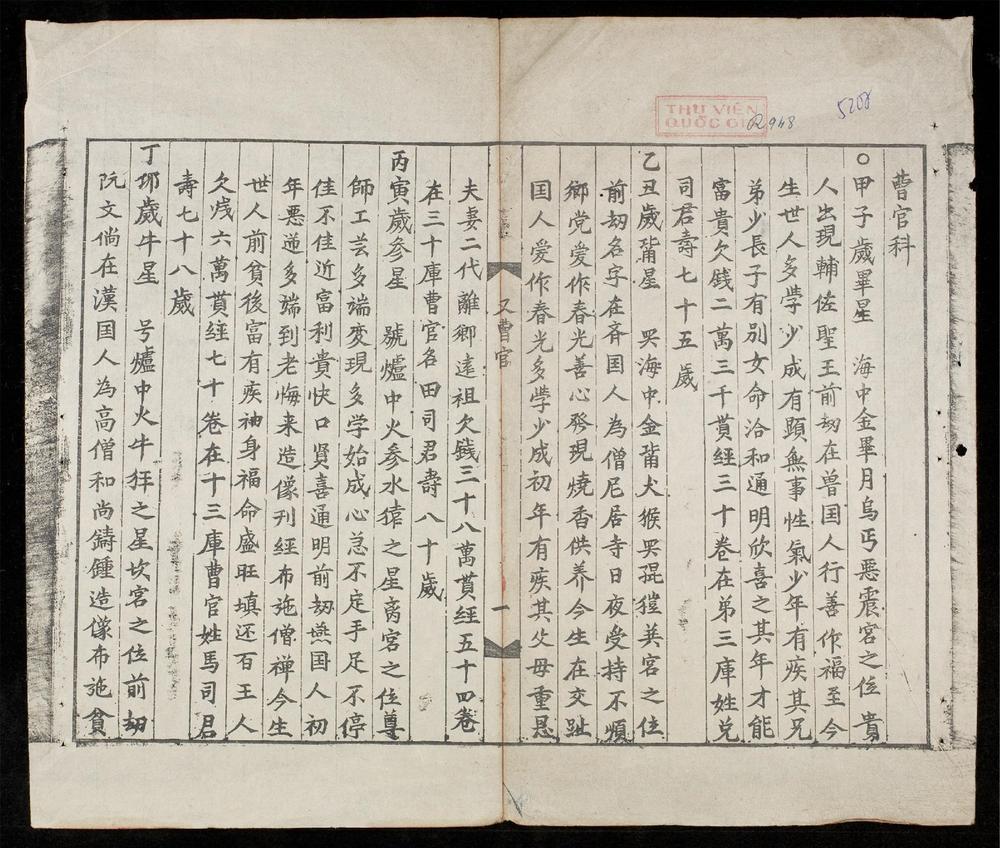 THƯ VIỆN
QUỐC GI
R948
5208
曹官科
○甲子歲畢星 海中金畢月烏丐惡震宮之位貴
人出現輔佐聖王前刼在兽国人行善作福至今
生世人多學少成有顕無事性氣少年有疾其兄
弟少長子有别女命洽和通明欣喜之其年才能
富貴欠錢二萬三千貫經三十卷在第三庫姓兑
司君壽七十五歲
乙丑歲觜星 哭海中金觜犬猴哭 巽宮之位
前刼名字在斉国人為僧尼居寺日夜受持不順
鄉党爱作春光善心發現燒香供养今生在交趾
国人爱作春光多學少成初年有疾其父母重恩
又曹官
一
夫妻二代離鄉遠祖欠錢三十八萬貫經五十四卷
在三十庫曹官名田司君壽八十歲
丙寅歲参星 號爐中火参水猿之星离宮之位尊
師工芸多端变現多学始成心急不定手足不停
佳不佳近富利貴快口賢喜通明前刼燕国人初
年悪逆多端到老悔来造像刊経布施僧禅今生
世人前貧後富有疾袖身福命盛旺填还百王人
欠浅六萬貫経七十卷在十三庫曹官姓馬司君
壽七十八歲
丁夘歲牛星 号爐中火牛 之星坎宮之位前刼
阮文倘在漢国人為高僧和尚鑄鍾造像布施貧